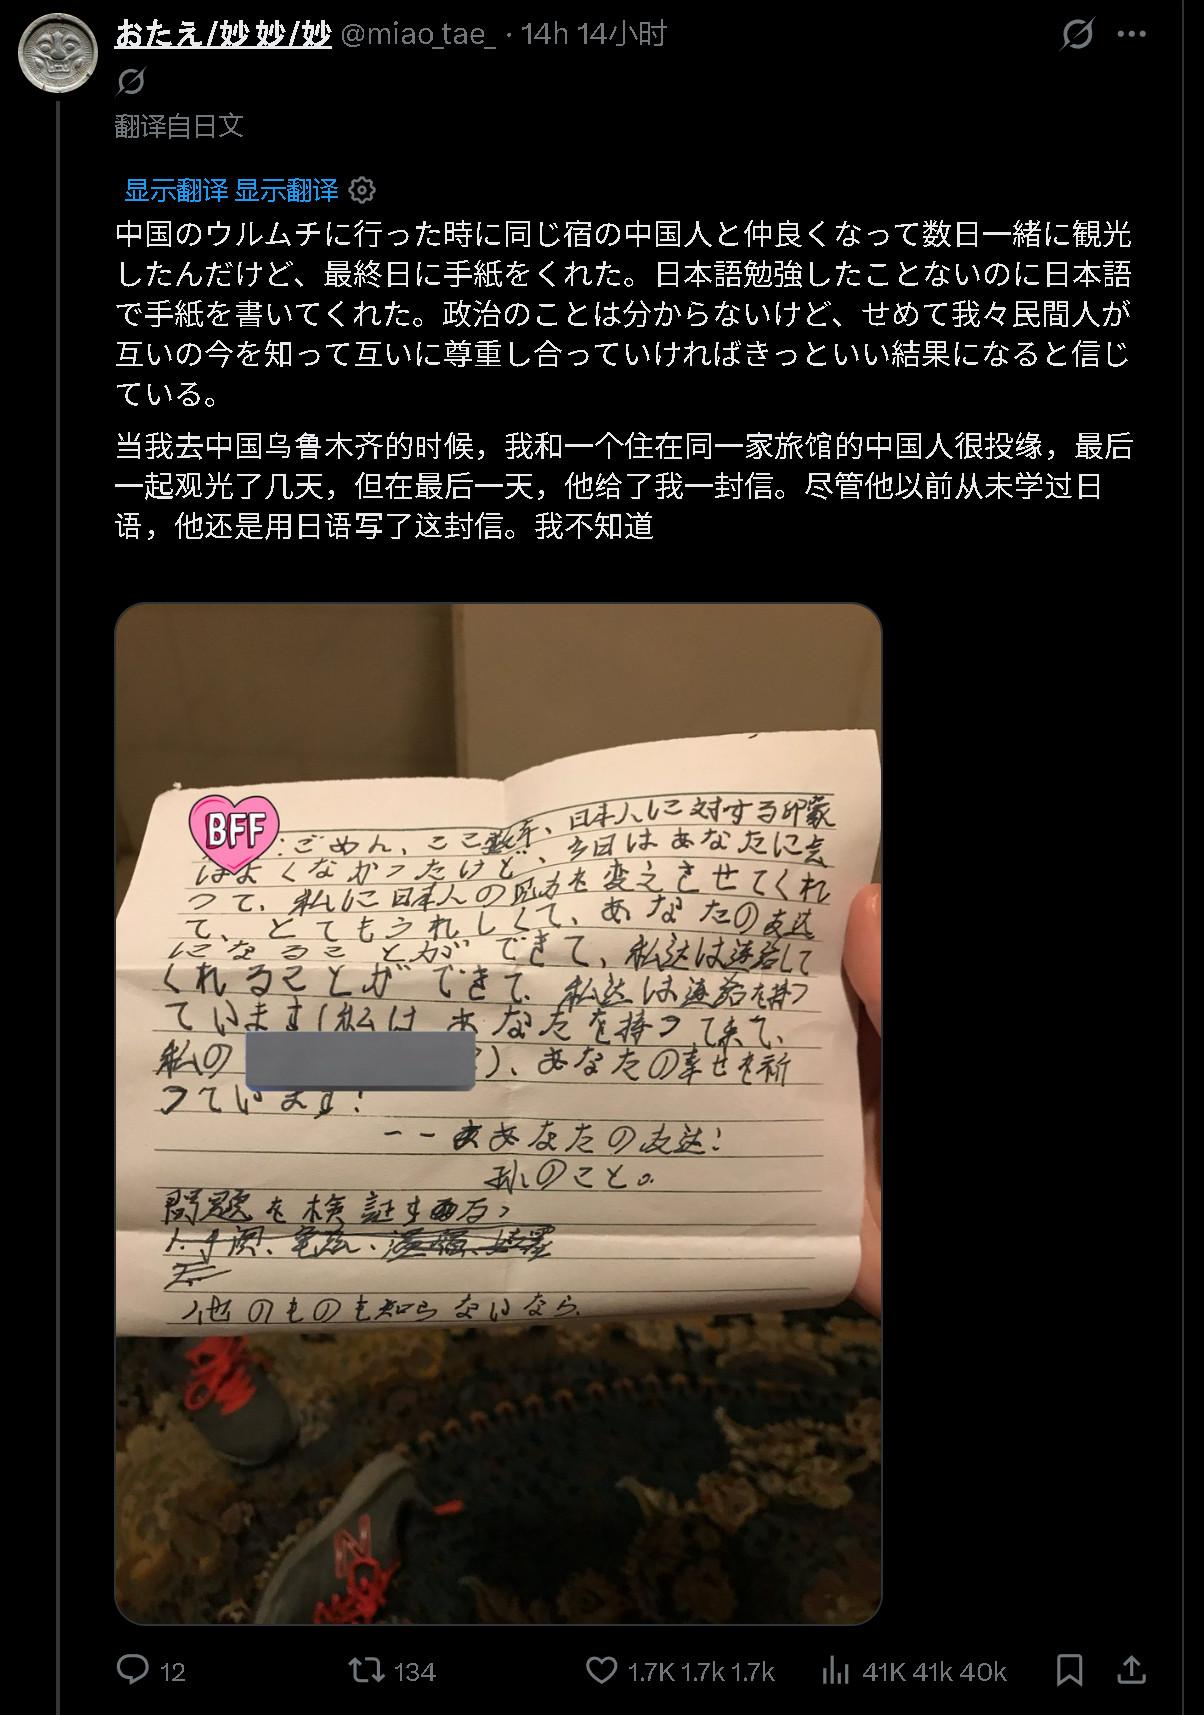 おたえ/妙妙/妙 @miao_tae_ · 14h 14小时
翻译自日文
显示翻译 显示翻译
中国のウルムチに行った時に同じ宿の中国人と仲良くなって数日一緒に観光
したんだけど、最終日に手紙をくれた。日本語勉強したことないのに日本語
で手紙を書いてくれた。政治のことは分からないけど、せめて我々民間人が
互いの今を知って互いに尊重し合っていければきっといい結果になると信じ
ている。
当我去中国乌鲁木齐的时候，我和一个住在同一家旅馆的中国人很投缘，最后
一起观光了几天，但在最后一天，他给了我一封信。尽管他以前从未学过日
语，他还是用日语写了这封信。我不知道
BFF
:ごめん、ここ数年、日本人に対する印象
はよくなかったけど、今日はあなたに会
って、私に日本人の見方を変えさせてくれ
て、とてもうれしくて、あなたの友达
になることができて、私达は连络して
くれることができて、私达は连络を持つ
ています(私はあなたを持って来て、
私の ）、あなたの幸せを祈
っています!
--あなたの友达!
私のこと。
問題を検証する
他のものも知らないなら
12
134
1.7K 1.7k 1.7k
41K 41k 40k